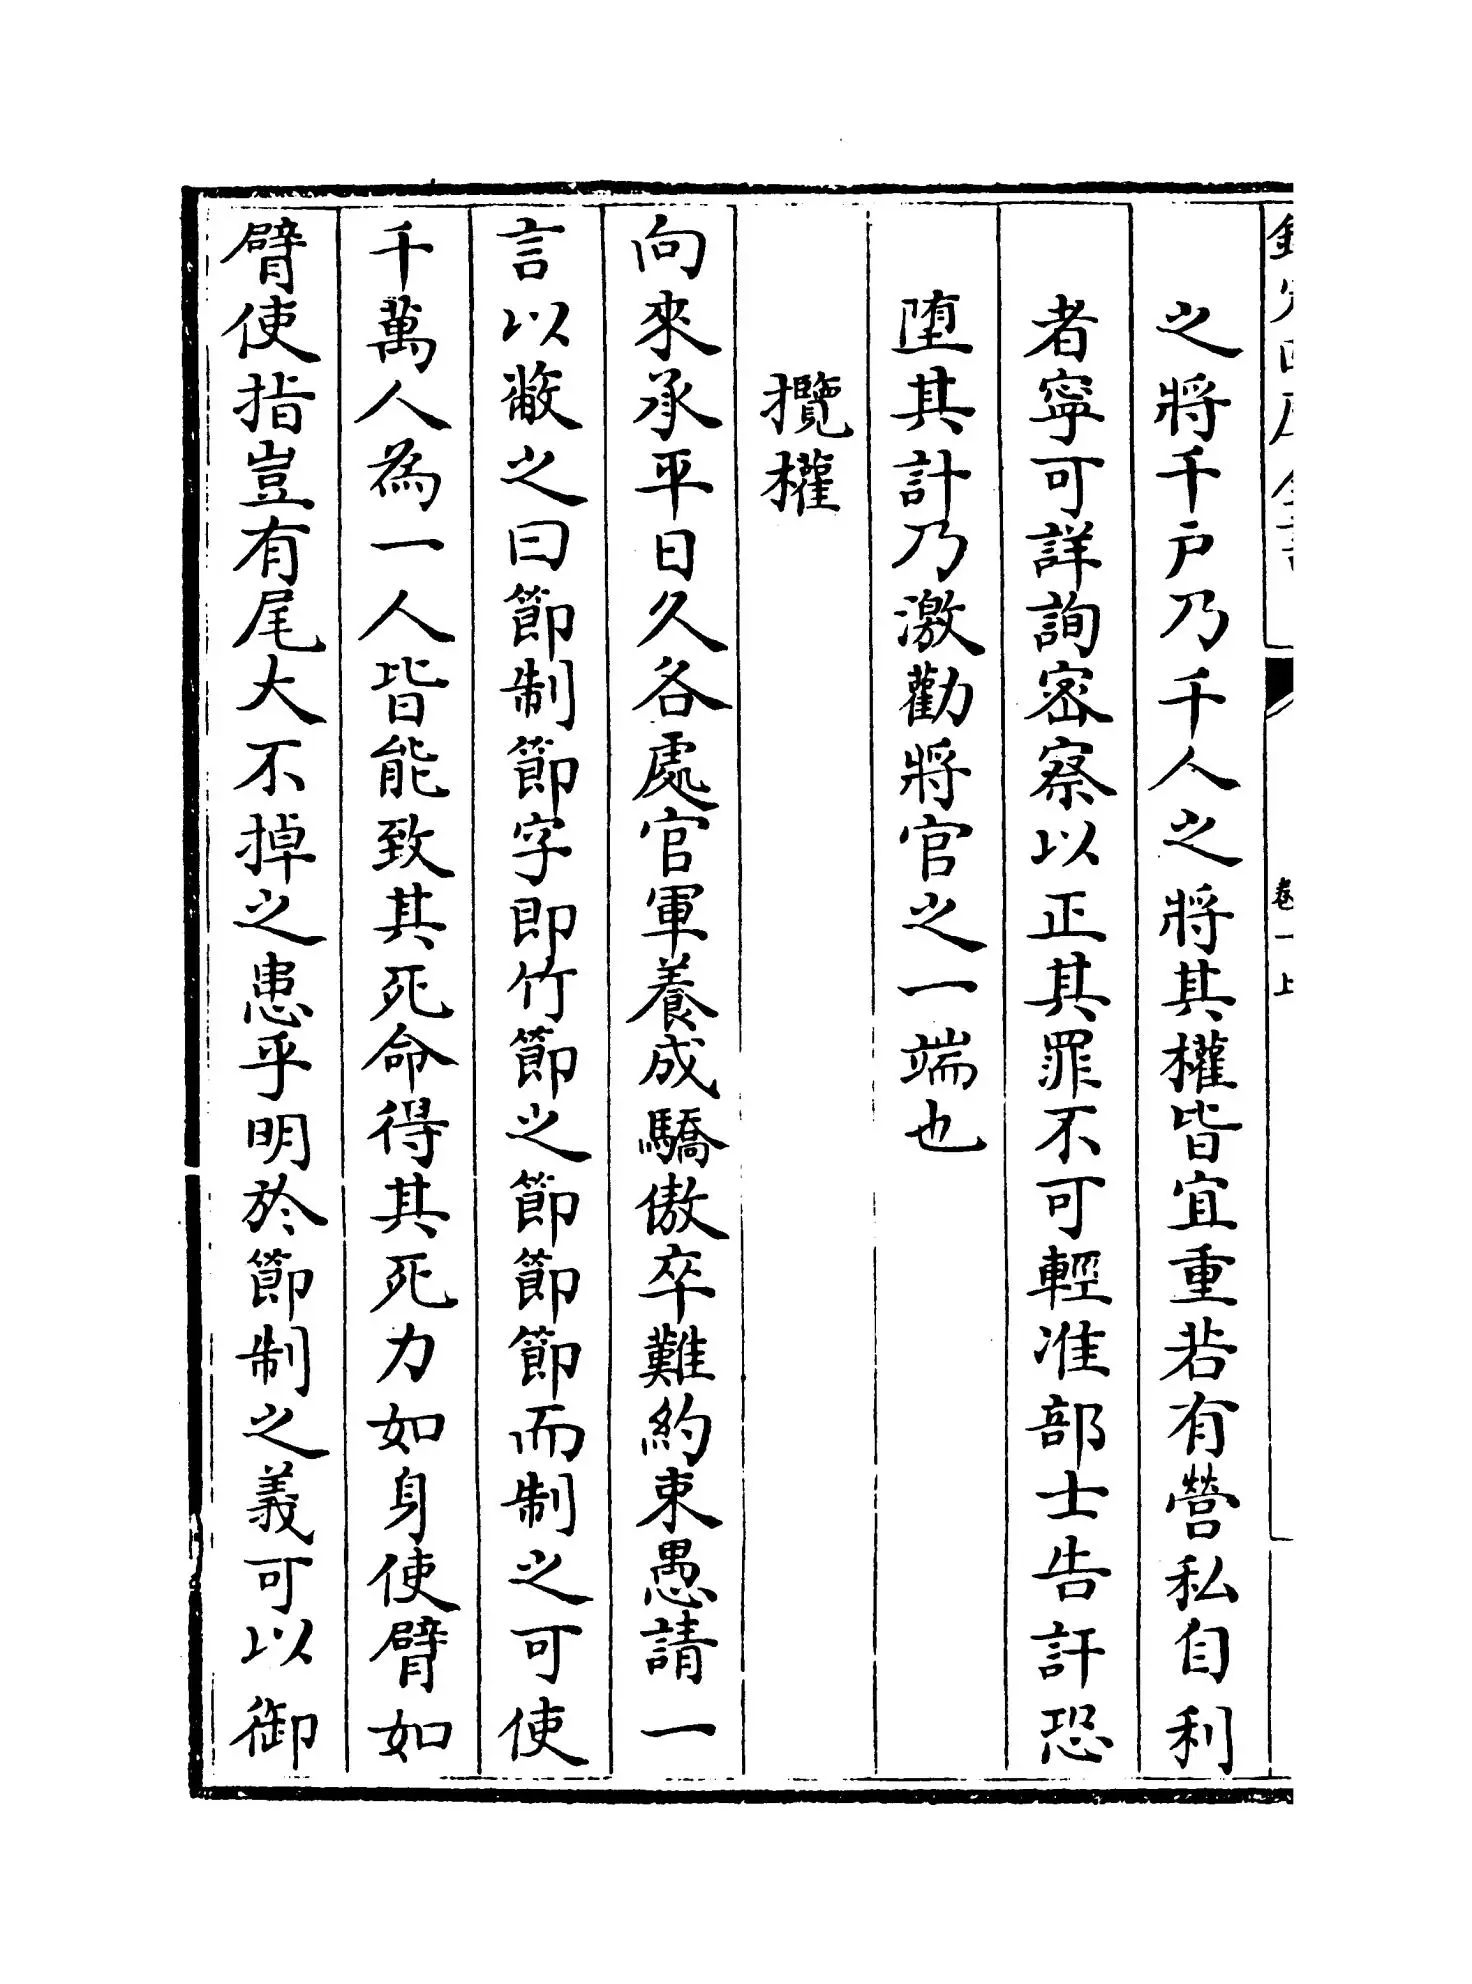 欽定四庫全書
卷一上
之將千户乃千人之將其權皆宜重若有營私自利
者寧可詳詢宻察以正其罪不可輕准部士告訐恐
堕其計乃激勸將官之一端也
攬權
向來承平日久各處官軍養成驕傲卒難約束愚請一
言以蔽之曰節制節字即竹節之節節節而制之可使
千萬人為一人皆能致其死命得其死力如身使臂如
臂使指豈有尾大不掉之患乎明於節制之義可以御